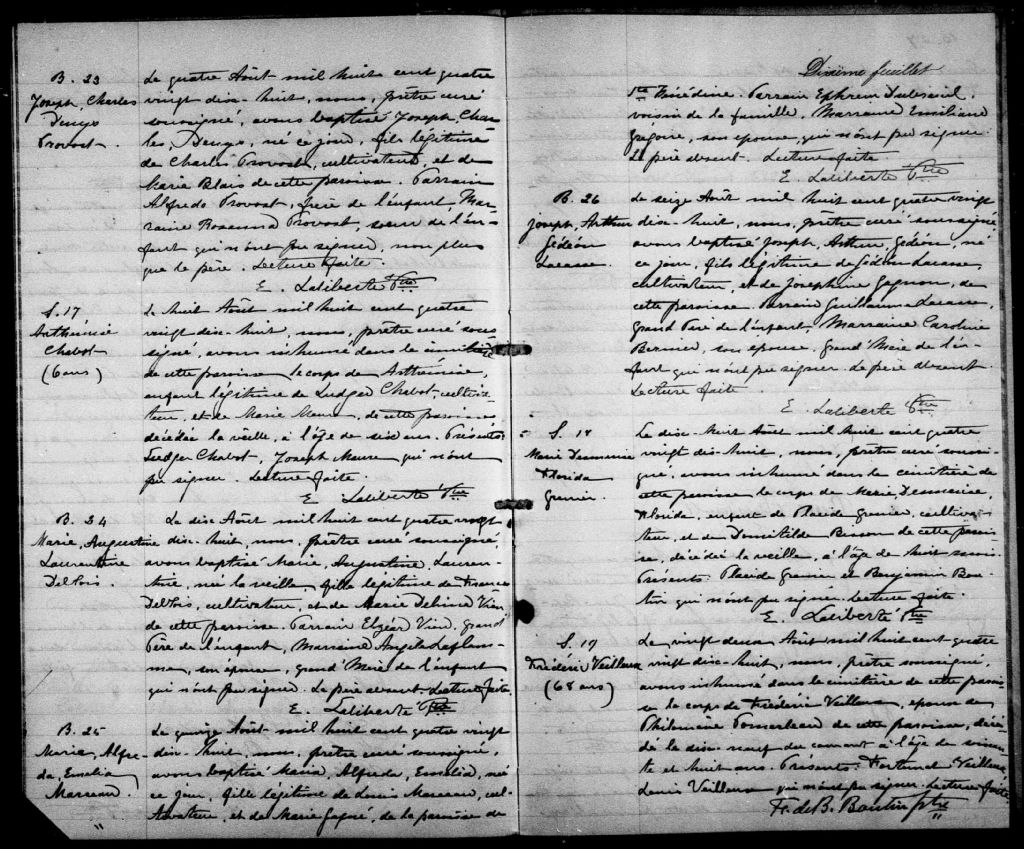 B. 23
Joseph, Charles
Provost
Le quatre Août mil huit cent quatre
vingt dix-huit, nous, prêtre curé
soussigné, avons baptisé Joseph, Char-
les, né ce jour, fils légitime
de Charles Provost, cultivateur, et de
Marie Blais de cette paroisse. Parrain
Alfredo Provost, frère de l'enfant Mar-
raine Rosanna Provost, soeur de l'en-
fant qui n'ont pu signer, non plus
que le père. Lecture faite.
E. Laliberté Ptre
S. 17
Arthémise
Chabot
(6 ans)
Le huit Août mil huit cent quatre
vingt dix-huit, nous, prêtre curé sous
signé, avons inhumé dans le cimetière
de cette paroisse le corps de Arthémise,
enfant légitime de Ludger Chabot, cultiva-
teur, et de Marie de cette paroisse
décédée la veille, à l'âge de six ans. Présents
Ludger Chabot, Joseph qui n'ont
pu signer. Lecture faite.
E. Laliberté Ptre
B. 24
Marie, Augustine
Laurentine
Deblois
Le dix Août mil huit cent quatre vingt
dix-huit, nous, prêtre curé soussigné,
avons baptisé Marie, Augustine, Lauren-
tine, née la veille, fille légitime de François
Deblois, cultivateur, et de Marie Delvina Vien,
de cette paroisse. Parrain Elzéar Vien, grand
Père de l'enfant, Marraine Angèle Laflam-
me, son épouse, grand'Mère de l'enfant
qui n'ont pu signer. Le père absent. Lecture faite,
E. Laliberté Ptre
B. 25
Maria, Alfre-
da, Emelia
Marceau
Le quinze Août mil huit cent quatre vingt
dix-huit, nous, prêtre curé soussigné,
avons baptisé Maria, Alfreda, Emelia, née
ce jour, fille légitime de Louis Marceau, cul-
tivateur, et de Marie Gagné, de la paroisse de
Dixième feuillet
Ste Parrain Ephrem Dubreuil,
voisin de la famille, Marraine Emiliane
Grégoire, son épouse, qui n'ont pu signer.
Le père absent. Lecture faite.
E. Laliberté Ptre
B. 26
Joseph, Arthur
Gédéon
Lacasse
Le seize Août mil huit cent quatre vingt
dix-huit, nous, prêtre curé soussigné,
avons baptisé Joseph, Arthur, Gédéon, né
ce jour, fils légitime de Gédéon Lacasse,
cultivateur, et de Joséphine Gagnon, de
cette paroisse. Parrain Guillaume Lacasse,
Grand Père de l'enfant, Marraine Caroline
Bernier, son épouse, Grand'Mère de l'en-
fant qui n'ont pu signer. Le père absent.
Lecture faite.
E. Laliberté Ptre
S. 18
Marie
Florida
Grenier
Le dix-huit Août mil huit cent quatre
vingt dix-huit, nous, prêtre curé soussi-
gné, avons inhumé dans le cimetière de
cette paroisse le corps de Marie,
Florida, enfant de Placide Grenier, cultiva-
teur, et de Domitilde Bisson de cette parois-
se, décédée la veille, à l'âge de huit mois.
Présents Placide Grenier et Benjamin Bou-
tin qui n'ont pu signer. Lecture faite.
E. Laliberté Ptre
S. 19
Frédéric Veilleux
(68 ans)
Le vingt deux Août mil huit cent quatre
vingt dix-huit, nous, prêtre soussigné,
avons inhumé dans le cimetière de cette parois-
se le corps de Frédéric Veilleux, époux de
Philomène Pomerleau de cette paroisse, décé-
dé le dix-neuf du courant à l'âge de soixan-
te et huit ans. Présents Fortunat Veilleux
Louis Veilleux qui n'ont pu signer. Lecture faite
F. de B. Boutin ptre